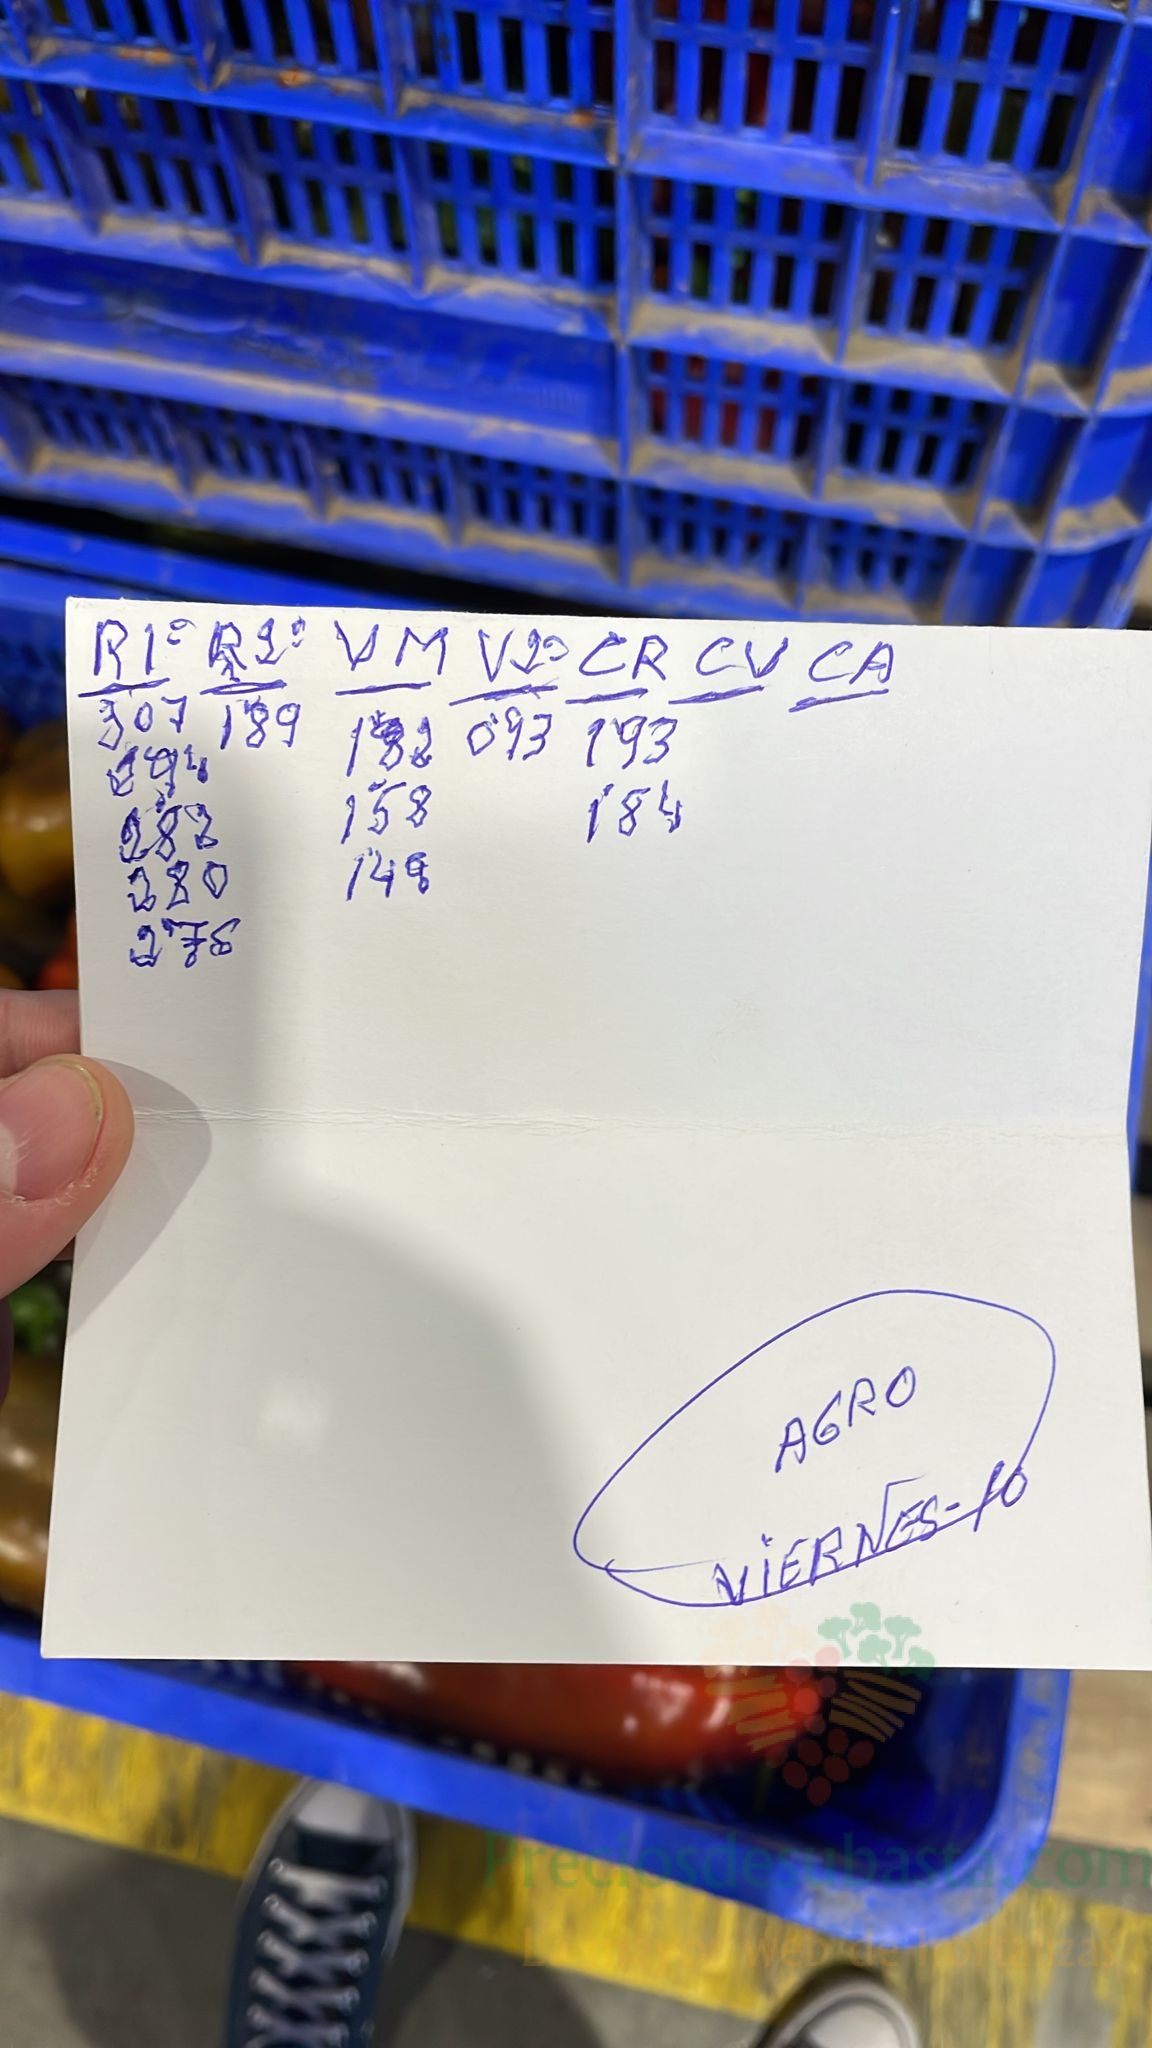 R1ª R2ª VM V2ª CR CV CA
307 189 182 093 193
294
282 158 184
280 149
AGRO
VIERNES-10
Preciosdesubasta.com